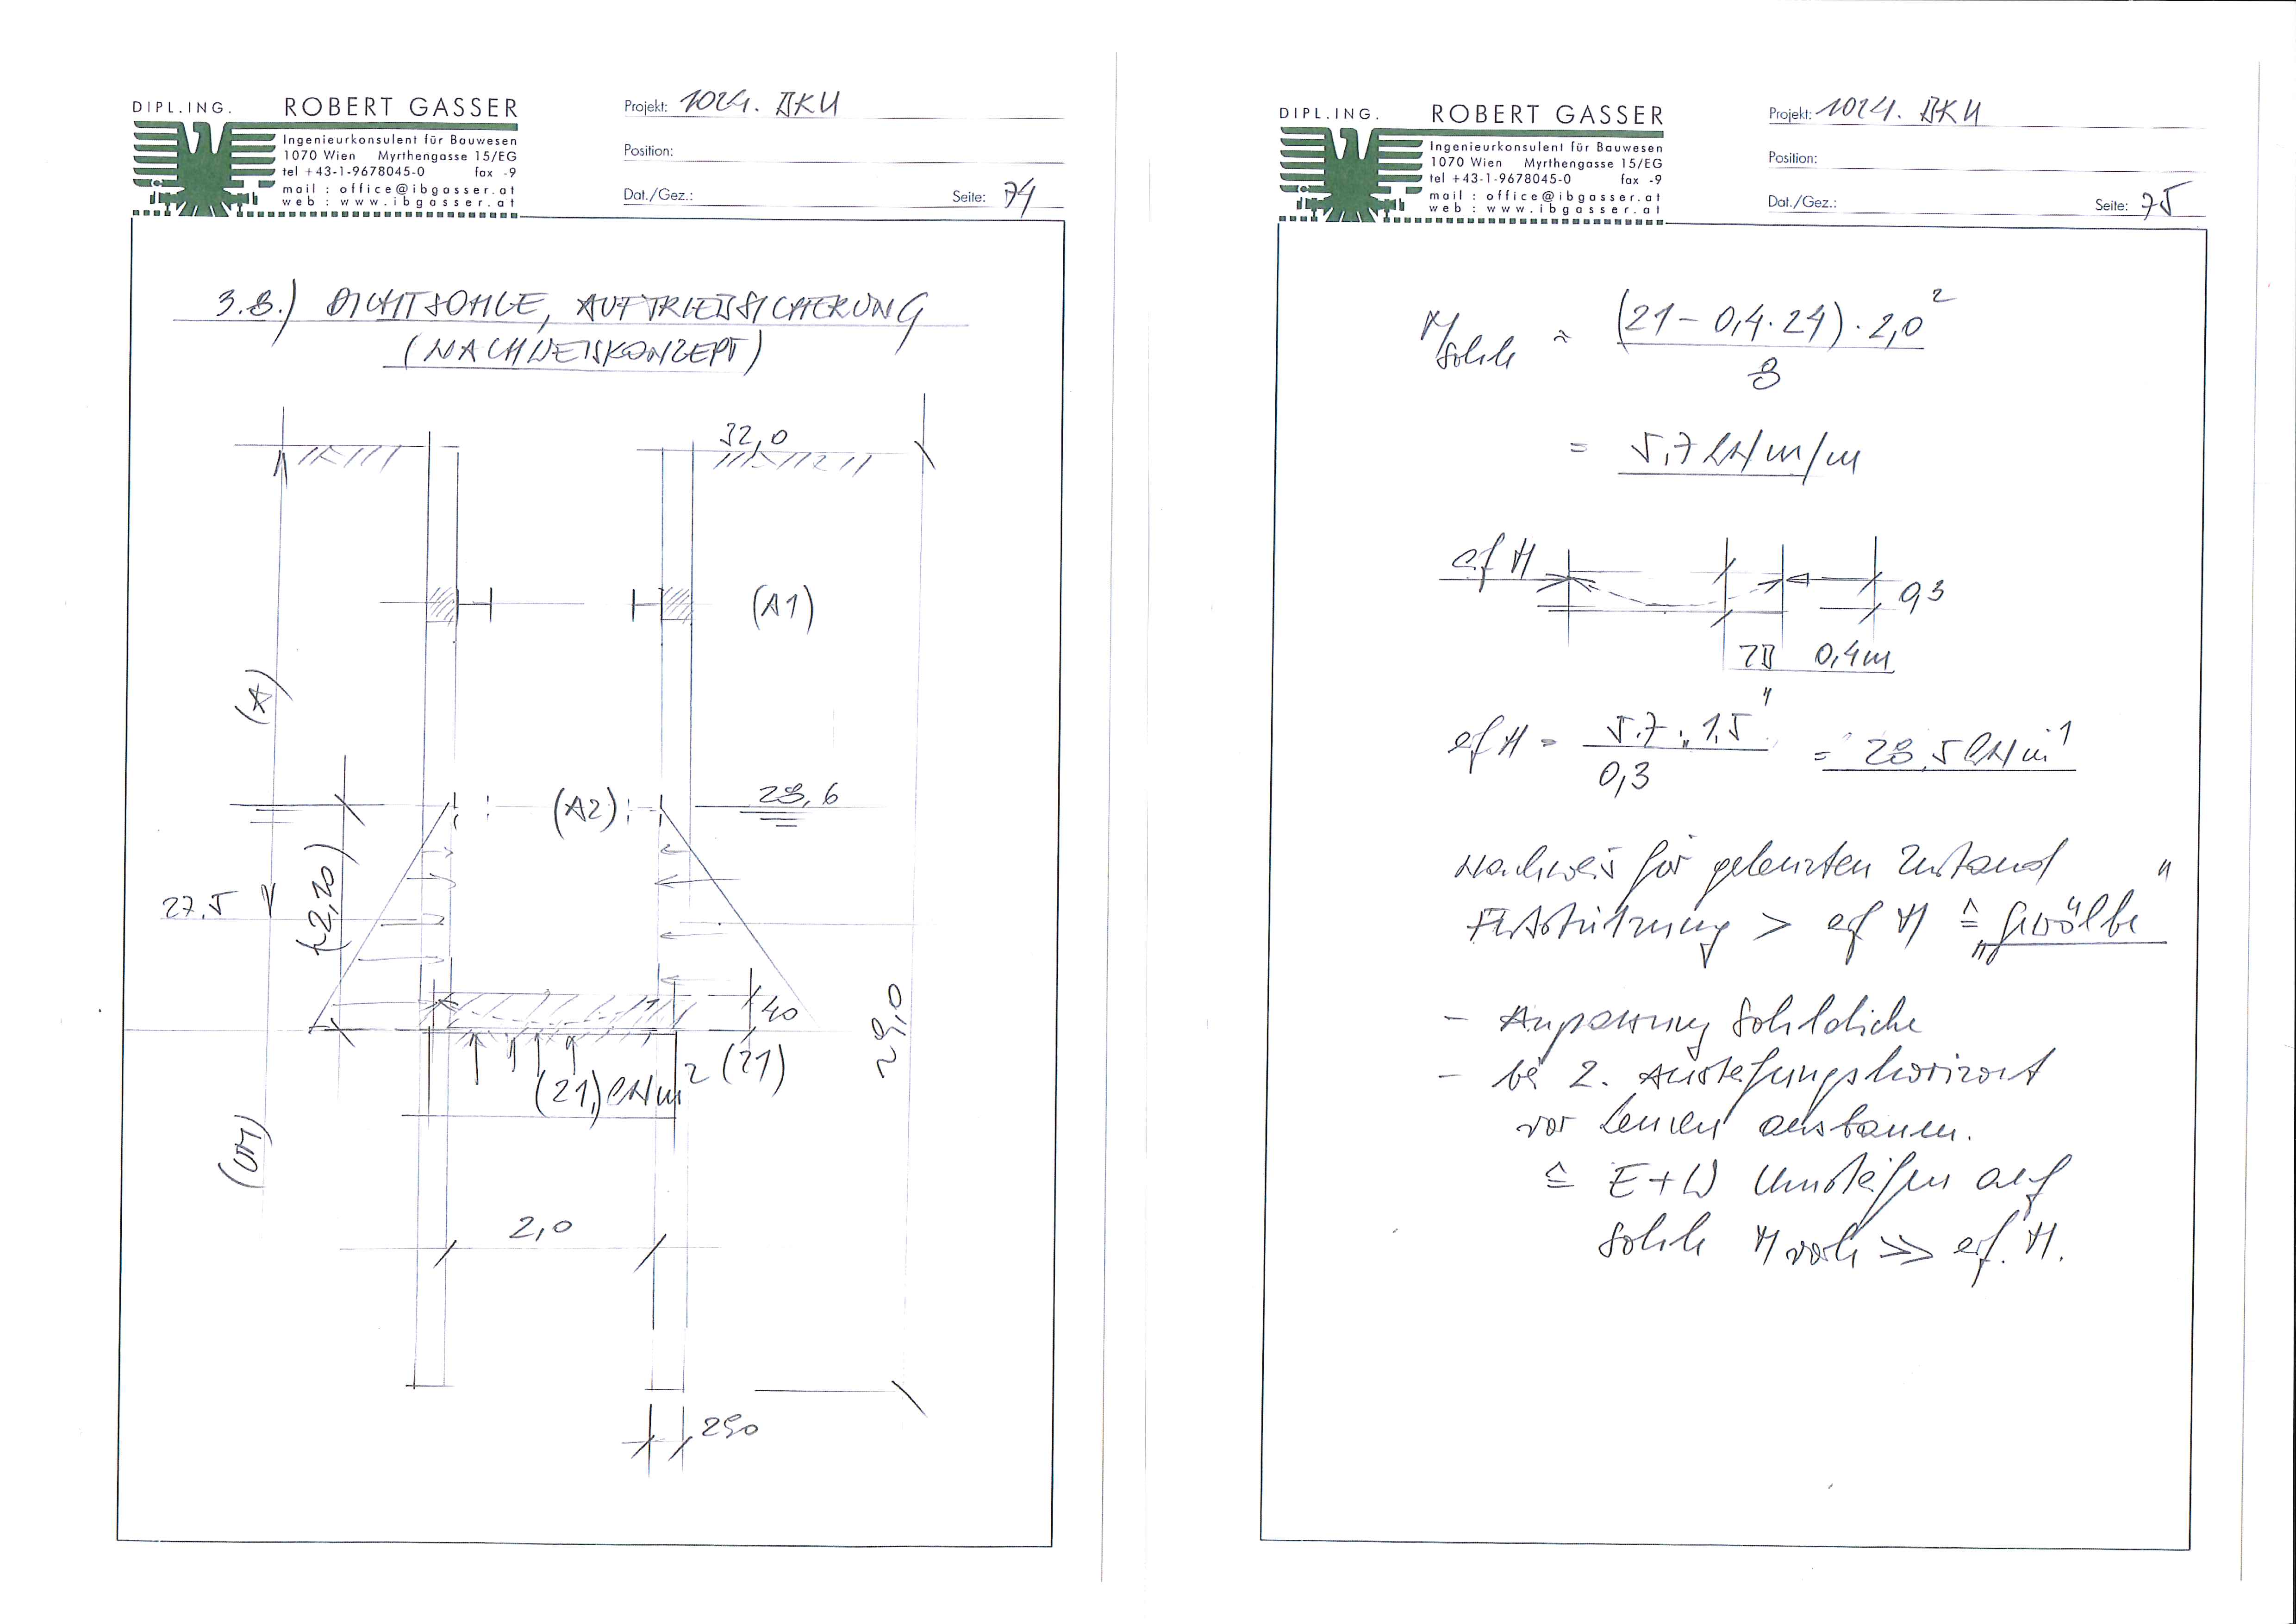 DIPL.ING. ROBERT GASSER
Ingenieurkonsulent für Bauwesen
1070 Wien Myrthengasse 15/EG
tel +43-1-9678045-0 fax -9
mail : office@ibgasser.at
web : www.ibgasser.at
Projekt: 1024. BKU
Position:
Dat./Gez.: Seite: 74
3.8.) DICHTSOHLE, AUFTRIEBSSICHERUNG
(NACHWEISKONZEPT)
32,0
(A1)
(A)
(A2)
28,6
27,5
(~2,10)
40
~9,0
(21) kN/m² (21)
(UM)
2,0
DIPL.ING. ROBERT GASSER
Ingenieurkonsulent für Bauwesen
1070 Wien Myrthengasse 15/EG
tel +43-1-9678045-0 fax -9
mail : office@ibgasser.at
web : www.ibgasser.at
Projekt: 1024. BKU
Position:
Dat./Gez.: Seite: 75
M Sohle ≈ (21 - 0,4 · 24) · 2,0²
8
= 5,7 kNm/m
erf H
0,3
ZB 0,4m
erf H = 5,7 · "1,5"
0,3
= 28,5 kN/m¹
Nachweis für gelenzten Zustand
> erf H ≙ "Gewölbe"
- Anpassung Sohldicke
- bei 2. Aussteifungshorizont
vor Lenzen ausbauen.
≙ E+W Umsteifen auf
Sohle H vorh >> erf. H.